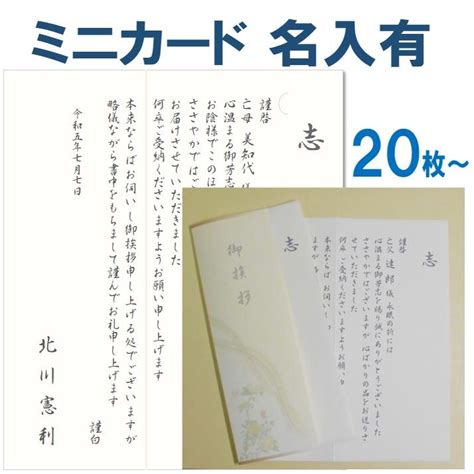 ミニカード 名入有
志
謹啓
亡母 美知代
心温まる御芳志
お陰様でこのほ
ささやかではご
お届けさせていただきました
何卒ご受納くださいますようお願い申し上げます
本来ならばお伺いし御挨拶申し上げる処でございますが
略儀ながら書中をもちまして謹んでお礼申し上げます
謹白
令和五年七月七日
北川憲利
20枚～
御挨拶
志
謹啓
亡父 達郎 儀 永眠の折には
心温まる御芳志を賜り誠にありがとうございました
ささやかではございますが 心ばかりの品をお送りさ
せていただきました
何卒ご受納くださいますようお願い
本来ならば お伺いし
ますが